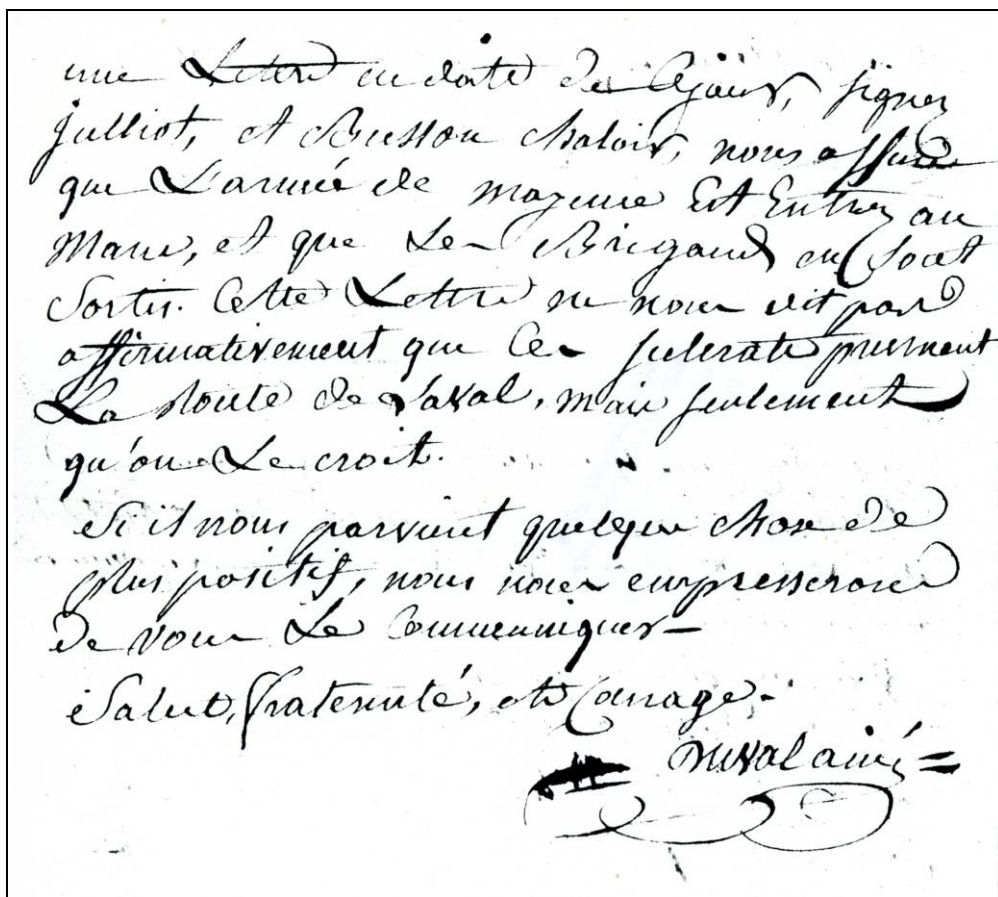 une Lettre en date de Cejour, signez
julliot, et Busson chaloir, nous assure
que L'armée de mayenne Est Entrez au
Mans, et que Les Brigands en Sont
Sortis. Cette Lettre ne nous dit pas
affirmativement que Ces scelerats prennent
La Route de Laval, mais seulement
qu'on Le croit.
Si il nous parvient quelque chose de
plus positif, nous nous empresserons
de vous Le Communiquer
Salut, fraternité, et Courage.